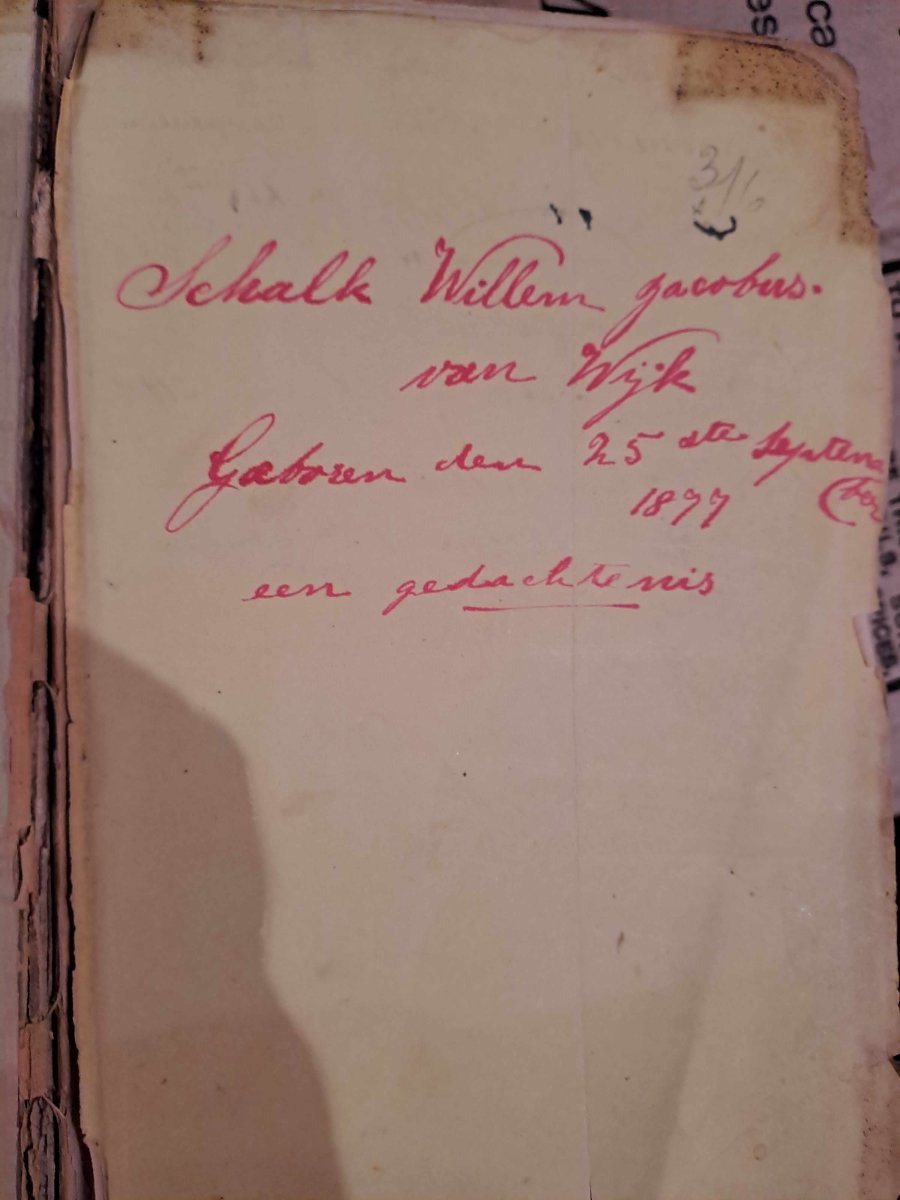 3/6
Schalk Willem Jacobus.
van Wijk
Geboren den 25 ste Septem
1877 (ber
een gedachtenis